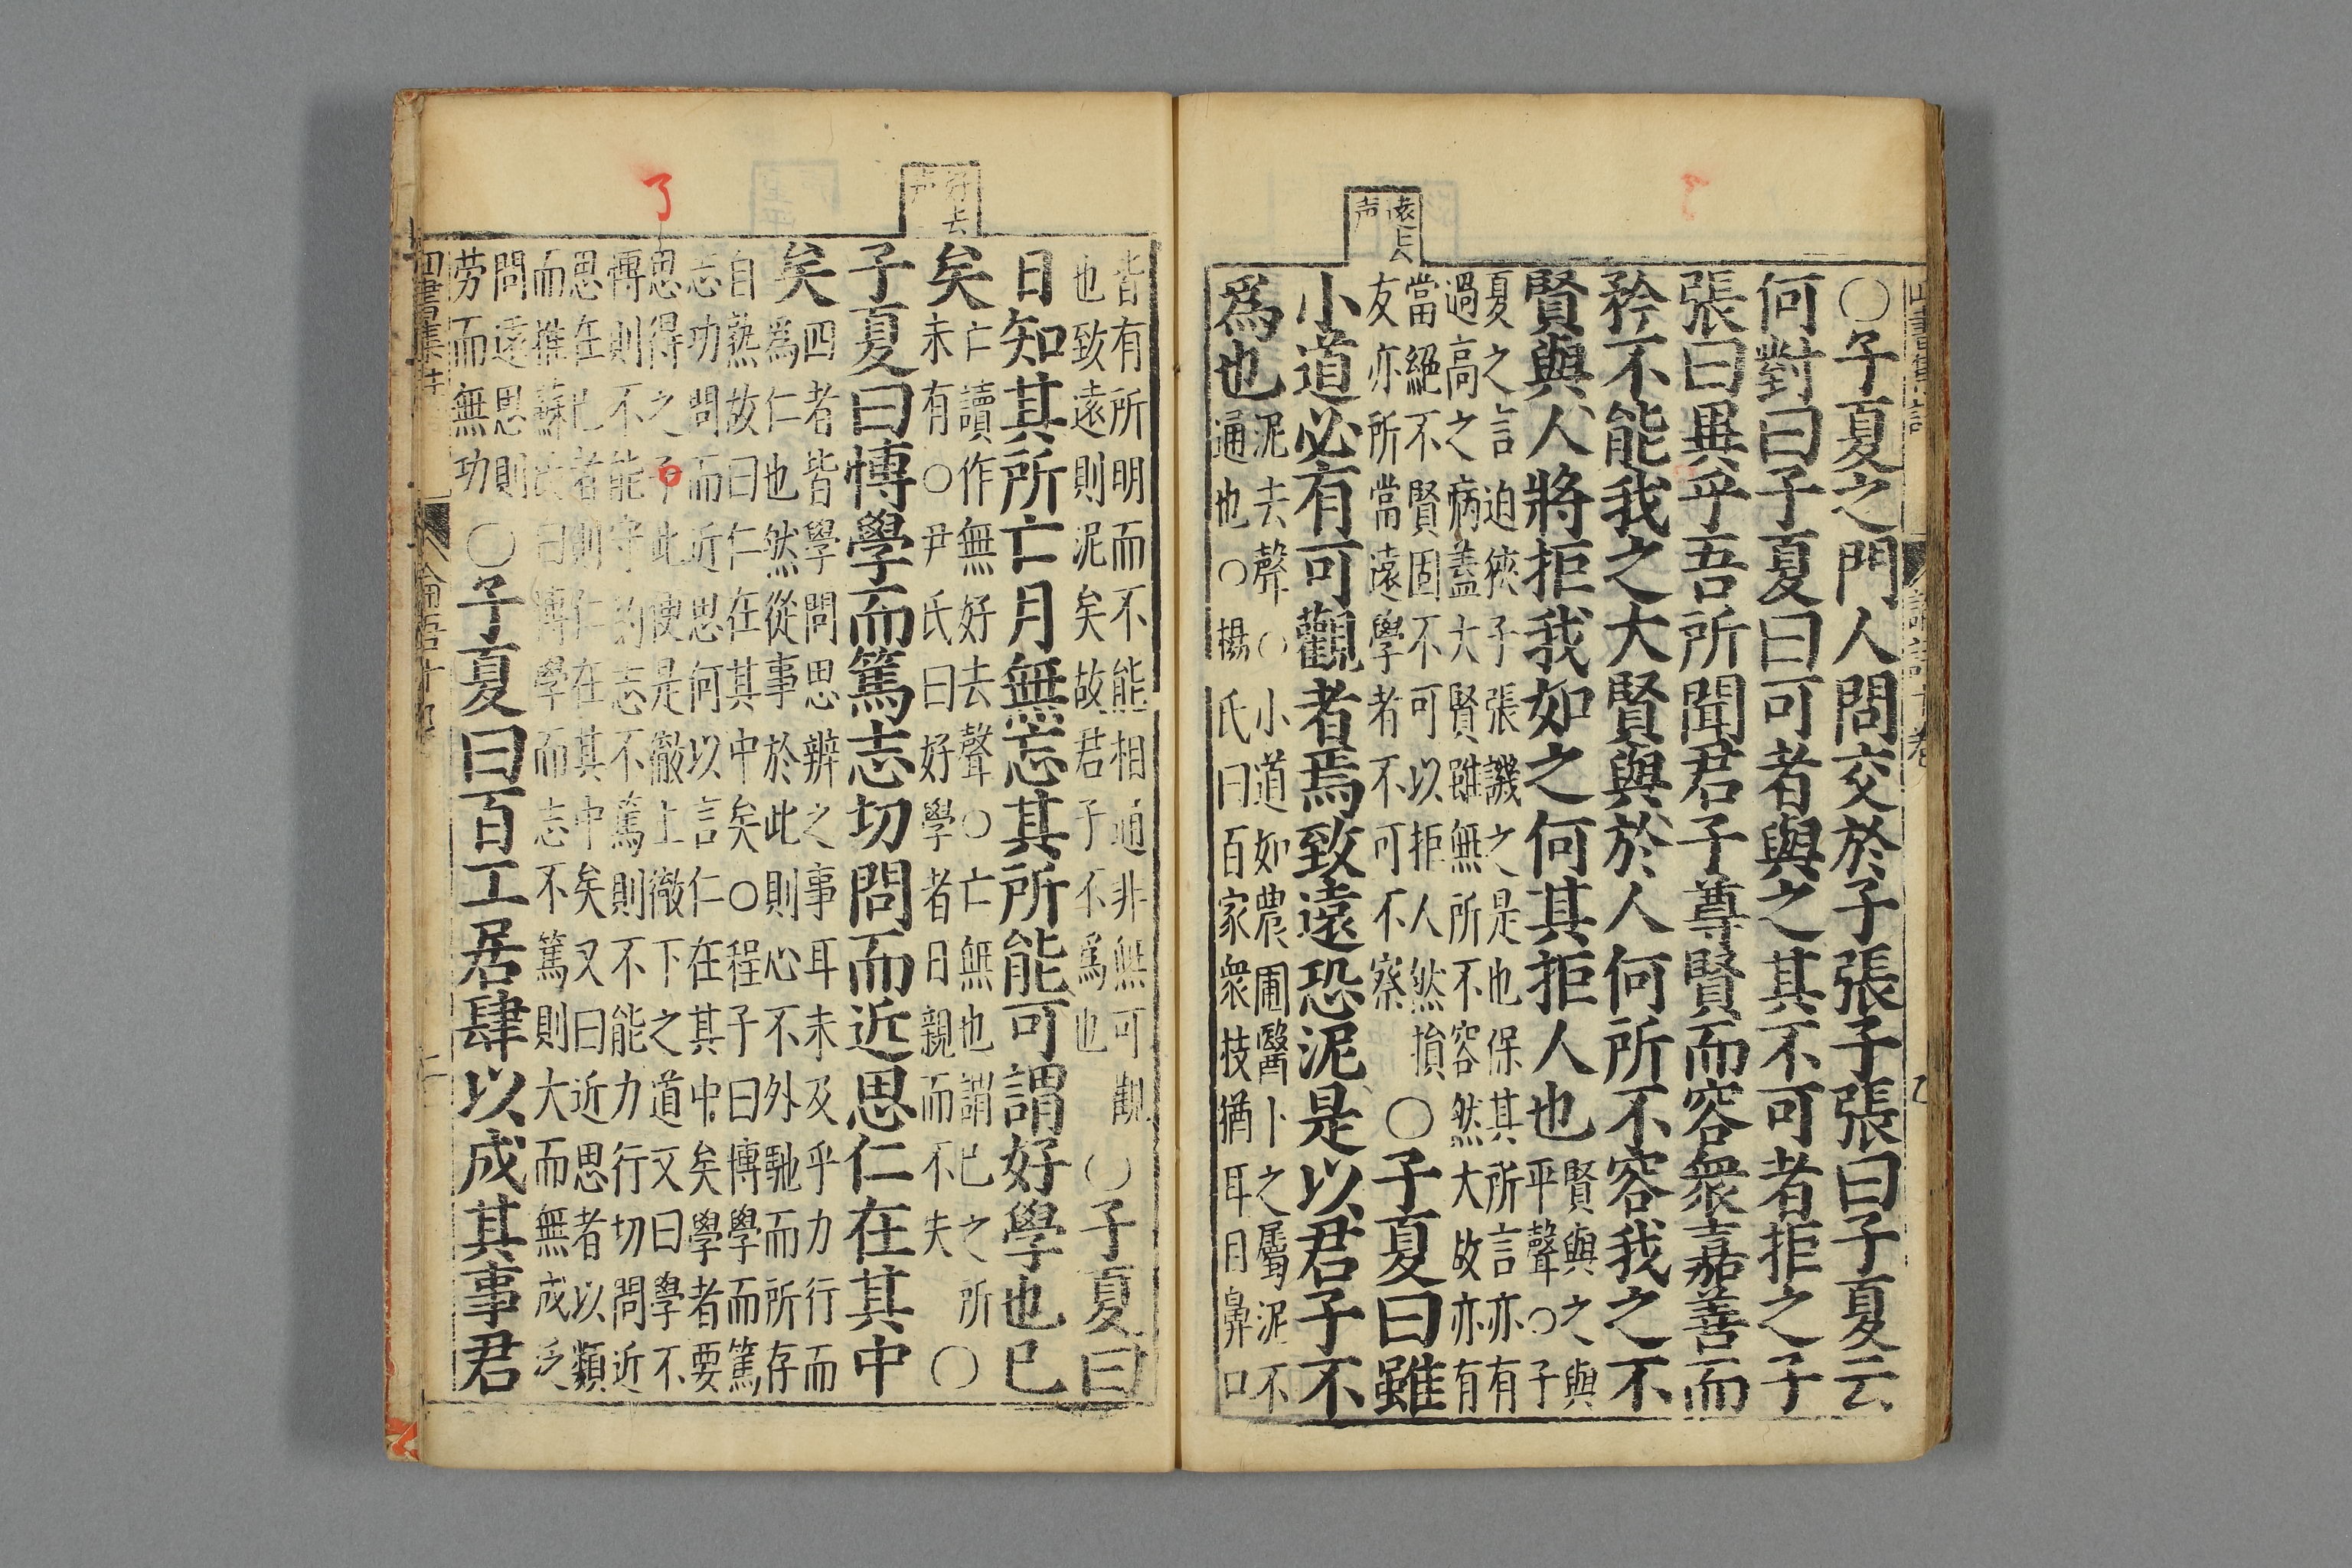 遠去
声
○子夏之門人問交於子張子張曰子夏云
何對曰子夏曰可者與之其不可者拒之子
張曰異乎吾所聞君子尊賢而容衆嘉善而
矜不能我之大賢與於人何所不容我之不
賢與人將拒我如之何其拒人也賢與之與
平聲○子
夏之言迫狹子張譏之是也保其所言亦有
過高之病蓋大賢雖無所不容然大故亦有
當絕不賢固不可以拒人然損
友亦所當遠學者不可不察
○子夏曰雖
小道必有可觀者焉致遠恐泥是以君子不
爲也泥去聲○小道如農圃醫卜之屬泥不
通也○楊氏曰百家衆技猶耳目鼻口
好去
声
皆有所明而不能相通非無可觀
也致遠則泥矣故君子不爲也
○子夏曰
日知其所亡月無忘其所能可謂好學也已
矣亡讀作無好去聲○亡無也謂已之所
未有○尹氏曰好學者日親而不失
○
子夏曰博學而篤志切問而近思仁在其中
矣四者皆學問思辨之事耳未及乎力行而
爲仁也然從事於此則心不外馳而所存
自熟故曰仁在其中矣○程子曰博學而篤
志切問而近思何以言仁在其中矣學者要
思得之了此便是徹上徹下之道又曰學不
博則不能守約志不篤則不能力行切問近
思在己者則仁在其中矣又曰近思者以類
而推蘇氏曰博學而志不篤則大而無成泛
問遠思則
勞而無功
○子夏曰百工居肆以成其事君
四書集註
論語十卷
了